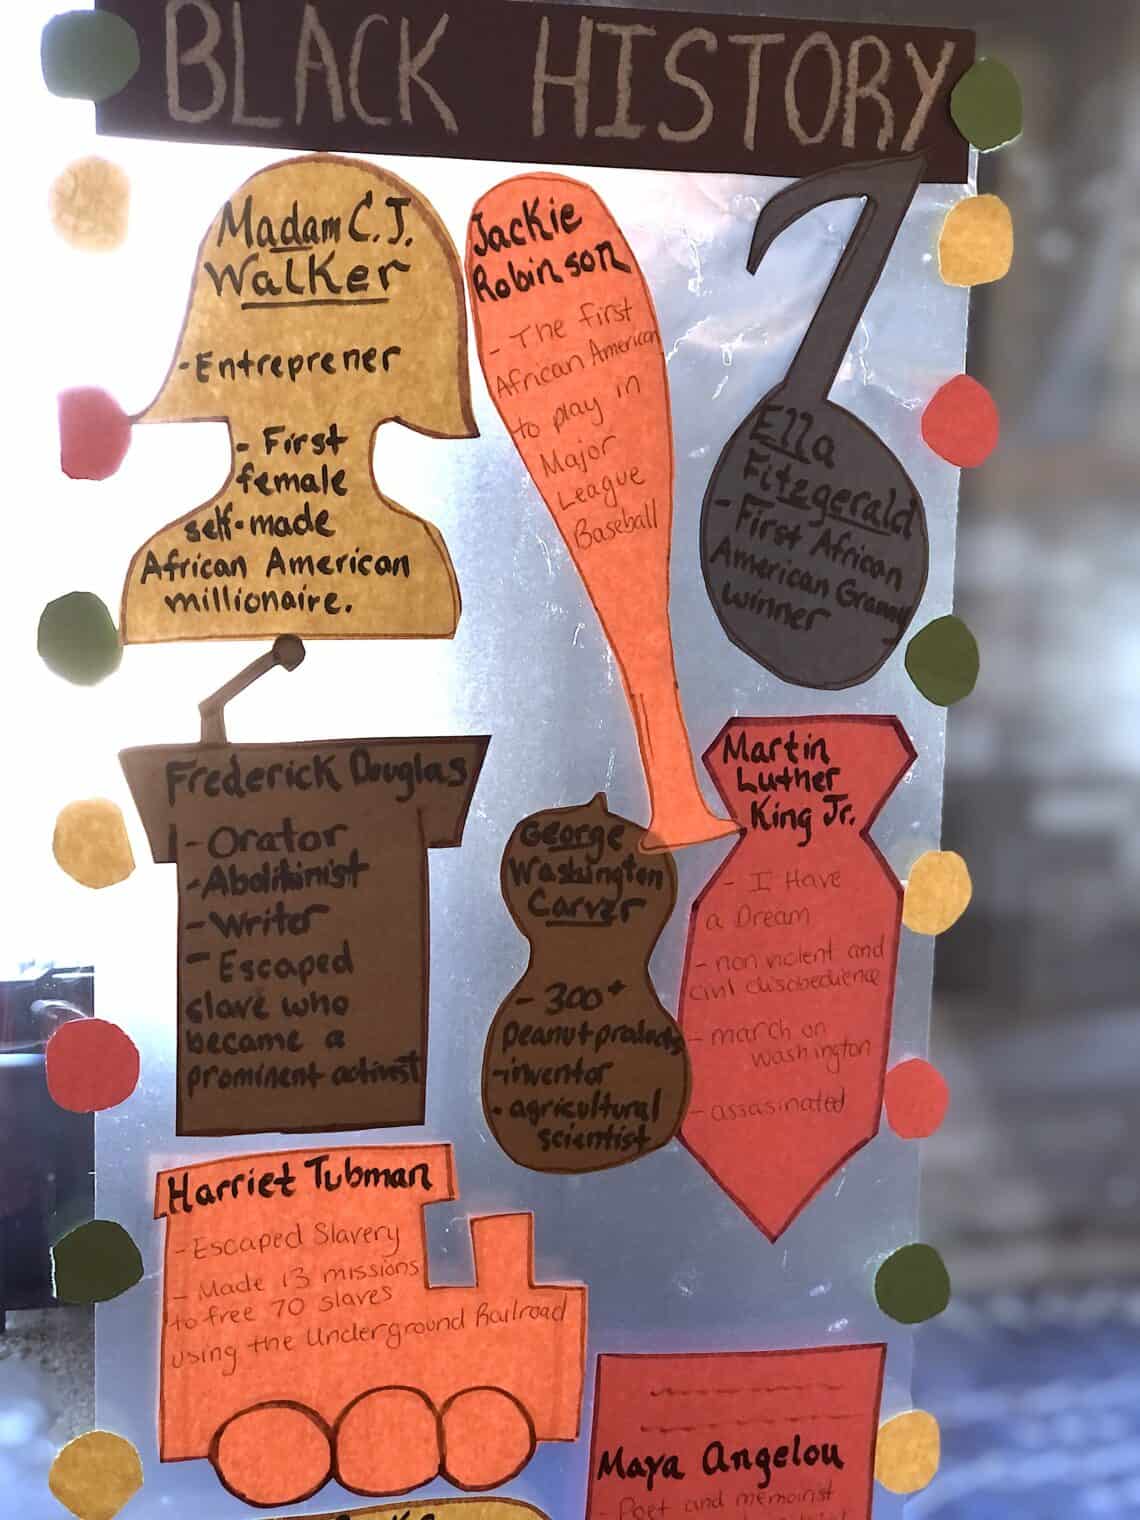 BLACK HISTORY
Madam C.J.
Walker
-Entreprener
- First
female
self-made
African American
millionaire.
Jackie
Robinson
- The first
African American
to play in
Major
League
Baseball
Ella
Fitzgerald
- First African
American Grammy
winner
Frederick Douglas
- Orator
- Abolitinist
- Writer
- Escaped
slave who
became a
prominent activist
George
Washington
Carver
- 300+
Peanut products
-inventor
- agricultural
scientist
Martin
Luther
King Jr.
- I Have
a Dream
- non violent and
civil disobedience
- march on
washington
- assasinated
Harriet Tubman
- Escaped Slavery
- Made 13 missions
to free 70 slaves
using the Underground Railroad
Maya Angelou
- Poet and memoirist